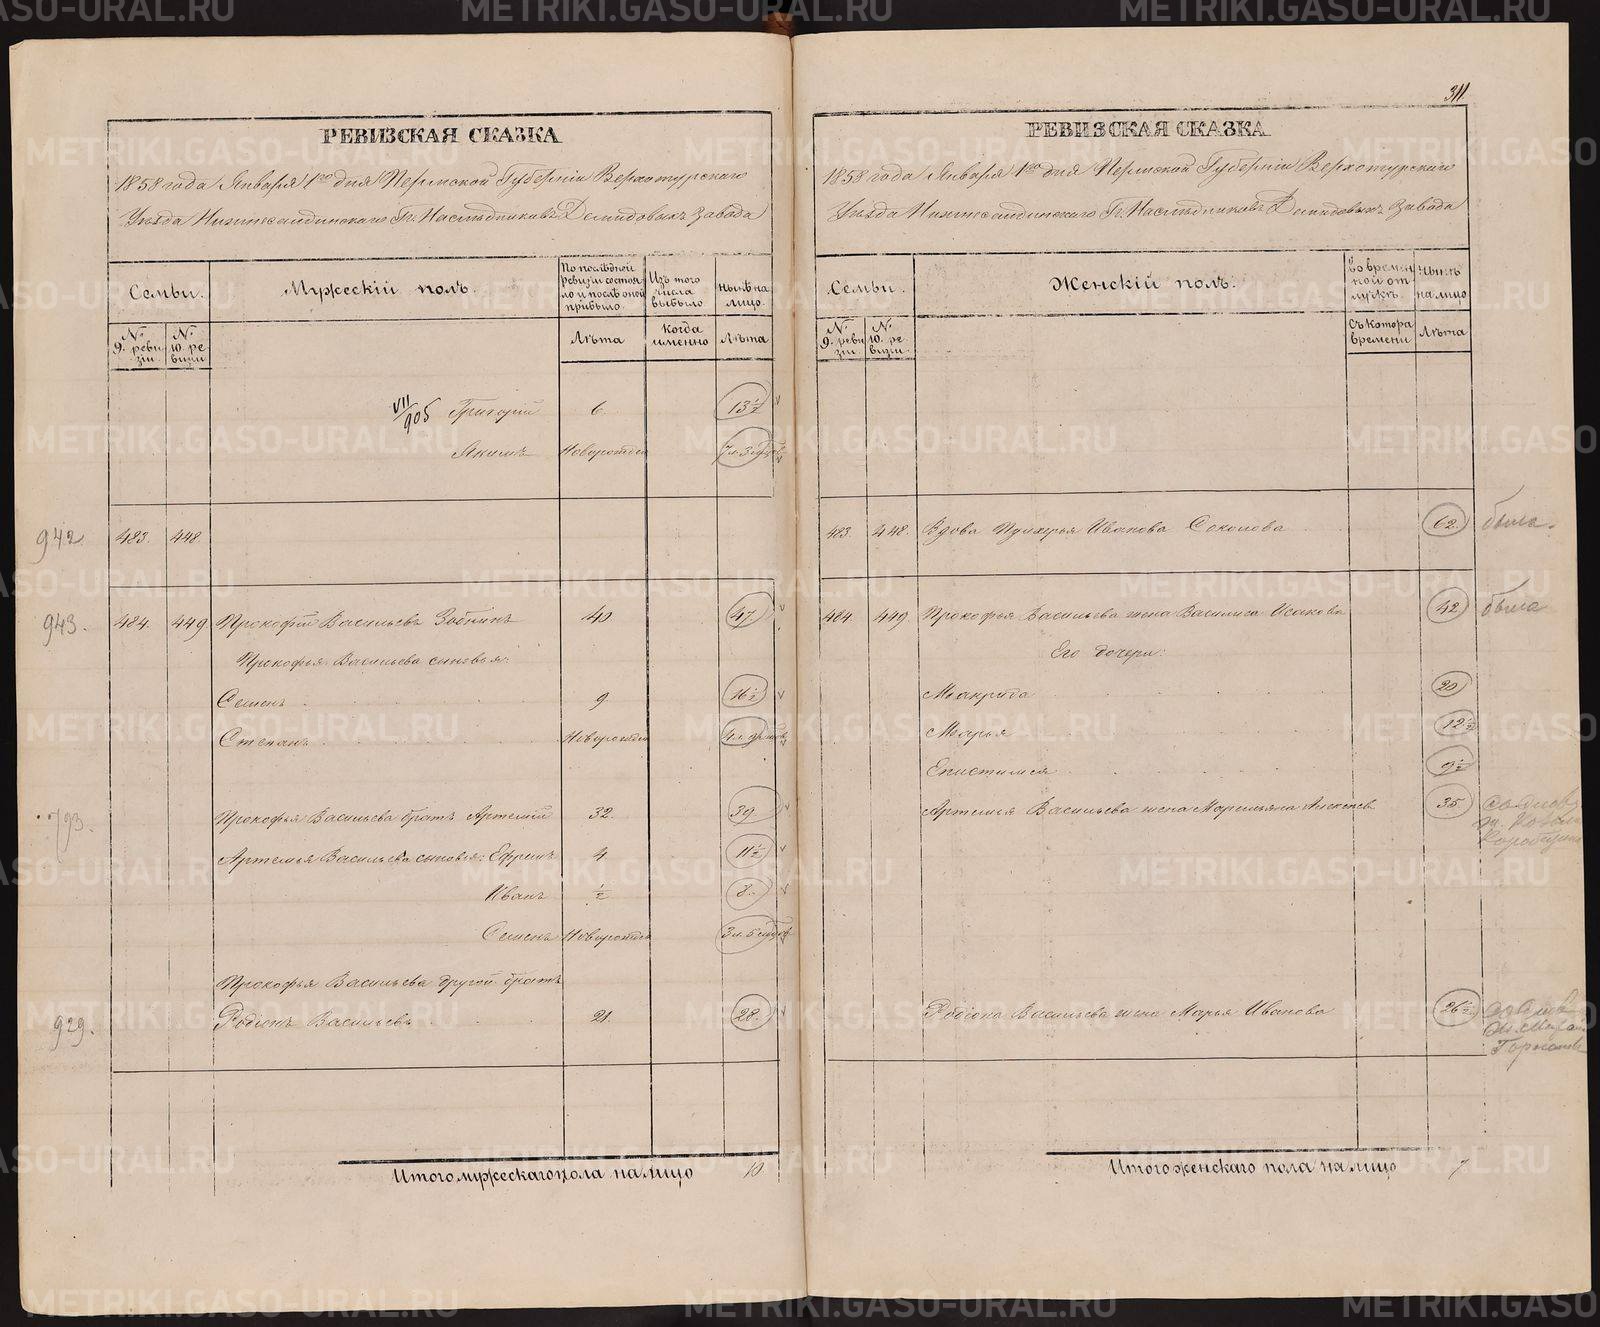 311
РЕВИЗСКАЯ СКАЗКА
1858 года Января 1го дня Пермской Губерніи Верхотурскаго
Уѣзда Нижнесалдинскаго Гг. Наслѣдниковъ Демидовыхъ Завода
Семьи.
Мужескій полъ.
По послѣдней ревизіи состояло и послѣ оной прибыло.
Изъ того числа выбыло
Нынѣ на лицо.
№ 9. ревизіи
№ 10. ревизіи
Лѣта
Когда именно
Лѣта
VII/905 Григорій 6. 13 1/2
Якимъ Новорожден 7 л. 3 мѣсяц
942 483. 448.
943. 484. 449. Прокофій Васильевъ Зобнинъ 40 47.
Прокофья Васильева сыновья:
Семенъ 9. 16 1/2
Степанъ Новорожден
793. Прокофья Васильева братъ Артемій 32. 39.
Артемья Васильева сыновья: Ефремъ 4. 11 1/2
Иванъ 1/2 8.
Семенъ Новорожден 3 л. 5 мѣсяц
Прокофья Васильева другой братъ
929. Родіонъ Васильевъ 21. 28.
Итого мужескаго пола на лицо 10
РЕВИЗСКАЯ СКАЗКА
1858 года Января 1го дня Пермской Губерніи Верхотурскаго
Уѣзда Нижнесалдинскаго Гг. Наслѣдниковъ Демидовыхъ Завода
Семьи.
Женскій полъ.
Во временной отлучкѣ.
Нынѣ на лицо
№ 9. ревизіи
№ 10. ревизіи
Съ котора времени
Лѣта
483. 448. Вдова Ивановa Соколова 62. была.
484. 449. Прокофья Васильева жена Василиса Исакова 42 была
Его дочери:
Макрида 20
Марья 12 1/2
Епистимія 9 1/2
Артемья Васильева жена Маремьяна Алексѣев 35
Родіона Васильева жена Марья Иванова 26 1/2
Итого женскаго пола на лицо 7.
METRIKI.GASO-URAL.RU